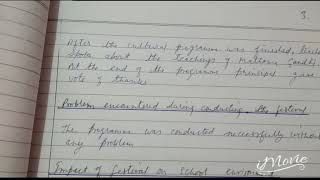 3.
After the cultural programme was finished,
spoke about the teachings of Mahatma Gandhi
At the end of the programme principal gave
vote of thanks
Problem encountered during conducting the festival
The programme was conducted successfully without
any problem
Impact of festival on school environ
Movie